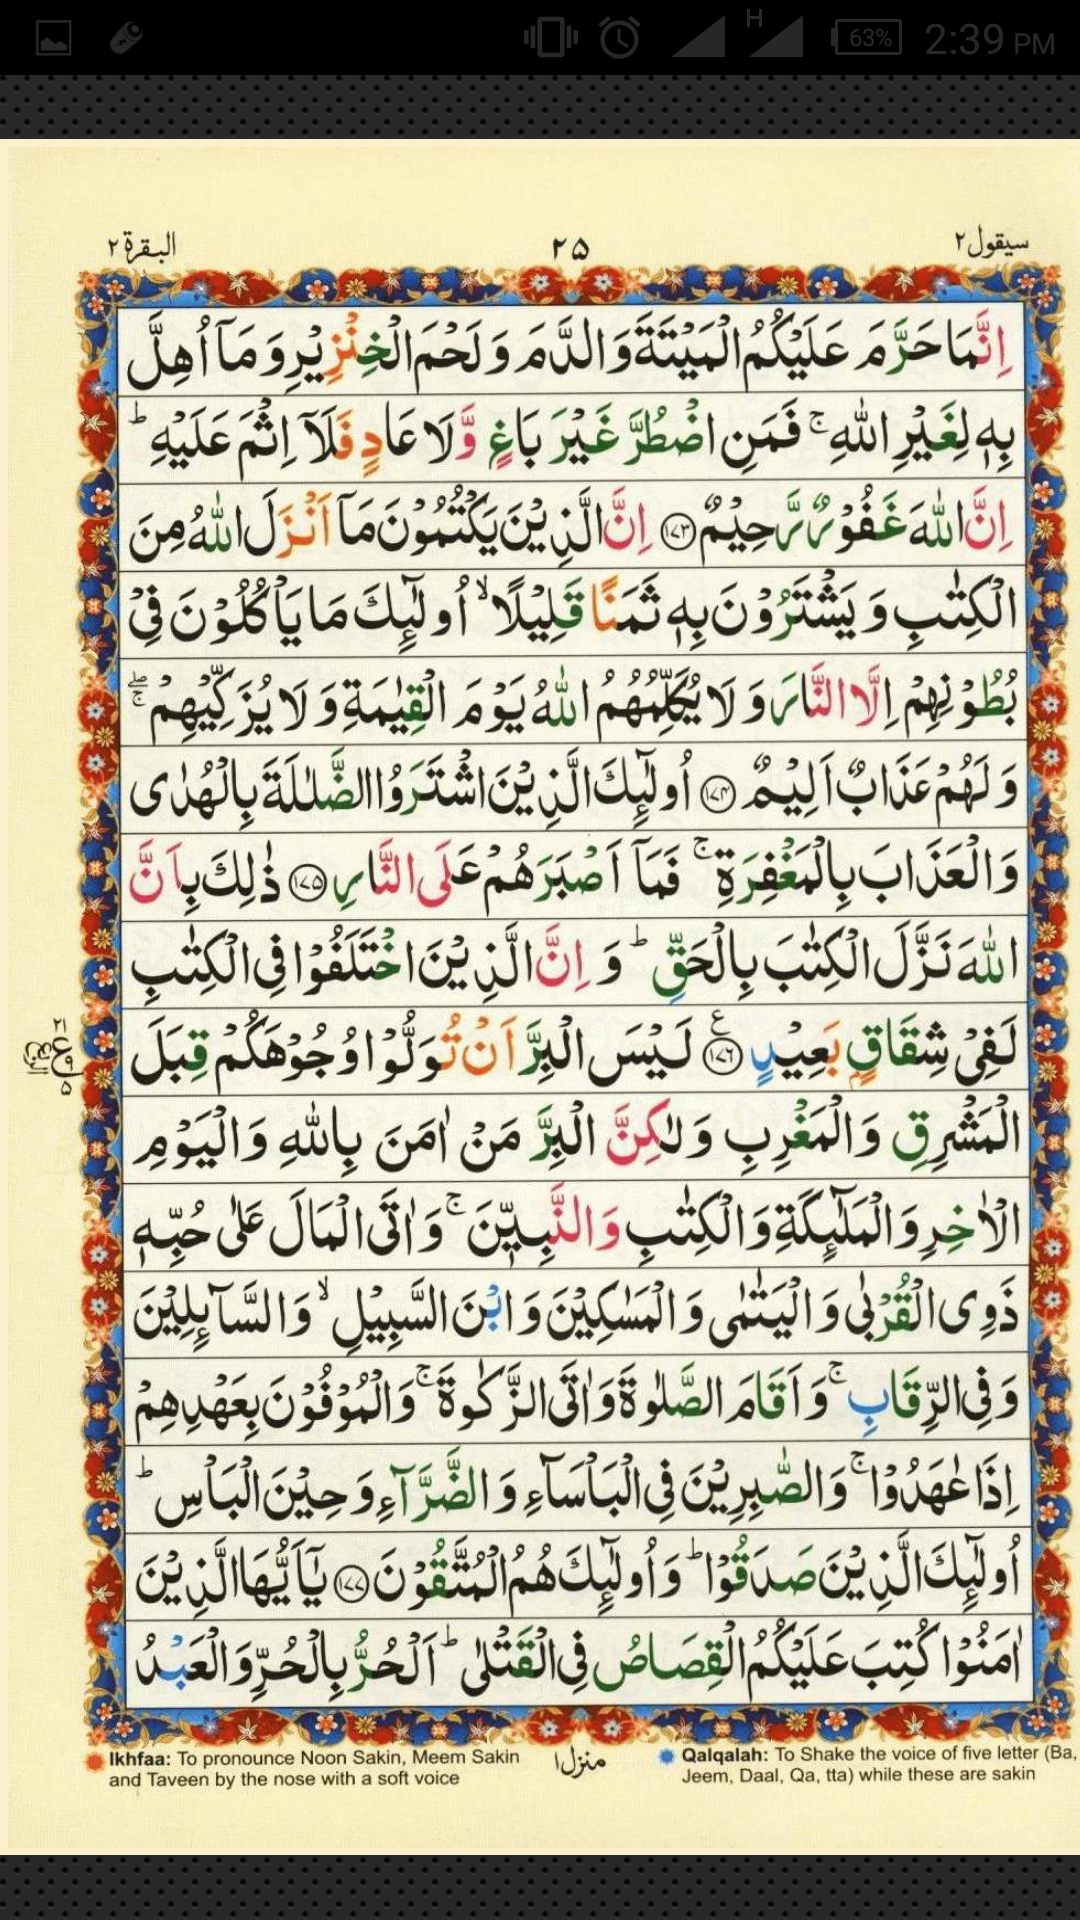 H 63% 2:39 PM
سيقول ٢ ٢٥ البقرة ٢
اِنَّمَا حَرَّمَ عَلَيْكُمُ الْمَيْتَةَ وَ الدَّمَ وَ لَحْمَ الْخِنْزِيْرِ وَ مَاۤ اُهِلَّ
بِهٖ لِغَيْرِ اللّٰهِ ۚ فَمَنِ اضْطُرَّ غَيْرَ بَاغٍ وَّ لَا عَادٍ فَلَاۤ اِثْمَ عَلَيْهِ ؕ
اِنَّ اللّٰهَ غَفُوْرٌ رَّحِيْمٌ ۝۱۷۳ اِنَّ الَّذِيْنَ يَكْتُمُوْنَ مَاۤ اَنْزَلَ اللّٰهُ مِنَ
الْكِتٰبِ وَ يَشْتَرُوْنَ بِهٖ ثَمَنًا قَلِيْلًا ۙ اُولٰٓئِكَ مَا يَاْكُلُوْنَ فِيْ
بُطُوْنِهِمْ اِلَّا النَّارَ وَ لَا يُكَلِّمُهُمُ اللّٰهُ يَوْمَ الْقِيٰمَةِ وَ لَا يُزَكِّيْهِمْ ۖۚ
وَ لَهُمْ عَذَابٌ اَلِيْمٌ ۝۱۷۴ اُولٰٓئِكَ الَّذِيْنَ اشْتَرَوُا الضَّلٰلَةَ بِالْهُدٰى
وَ الْعَذَابَ بِالْمَغْفِرَةِ ۚ فَمَاۤ اَصْبَرَهُمْ عَلَى النَّارِ ۝۱۷۵ ذٰلِكَ بِاَنَّ
اللّٰهَ نَزَّلَ الْكِتٰبَ بِالْحَقِّ ؕ وَ اِنَّ الَّذِيْنَ اخْتَلَفُوْا فِي الْكِتٰبِ
لَفِيْ شِقَاقٍۭ بَعِيْدٍ ۝۱۷۶ لَيْسَ الْبِرَّ اَنْ تُوَلُّوْا وُجُوْهَكُمْ قِبَلَ
الْمَشْرِقِ وَ الْمَغْرِبِ وَ لٰكِنَّ الْبِرَّ مَنْ اٰمَنَ بِاللّٰهِ وَ الْيَوْمِ
الْاٰخِرِ وَ الْمَلٰٓئِكَةِ وَ الْكِتٰبِ وَ النَّبِيّٖنَ ۚ وَ اٰتَى الْمَالَ عَلٰى حُبِّهٖ
ذَوِي الْقُرْبٰى وَ الْيَتٰمٰى وَ الْمَسٰكِيْنَ وَ ابْنَ السَّبِيْلِ ۙ وَ السَّآىِٕلِيْنَ
وَ فِي الرِّقَابِ ۚ وَ اَقَامَ الصَّلٰوةَ وَ اٰتَى الزَّكٰوةَ ۚ وَ الْمُوْفُوْنَ بِعَهْدِهِمْ
اِذَا عٰهَدُوْا ۚ وَ الصّٰبِرِيْنَ فِي الْبَاْسَآءِ وَ الضَّرَّآءِ وَ حِيْنَ الْبَاْسِ ؕ
اُولٰٓئِكَ الَّذِيْنَ صَدَقُوْا ؕ وَ اُولٰٓئِكَ هُمُ الْمُتَّقُوْنَ ۝۱۷۷ يٰۤاَيُّهَا الَّذِيْنَ
اٰمَنُوْا كُتِبَ عَلَيْكُمُ الْقِصَاصُ فِي الْقَتْلٰى ؕ اَلْحُرُّ بِالْحُرِّ وَ الْعَبْدُ
منزل ١
Ikhfaa: To pronounce Noon Sakin, Meem Sakin
and Taveen by the nose with a soft voice
Qalqalah: To Shake the voice of five letter (Ba,
Jeem, Daal, Qa, tta) while these are sakin